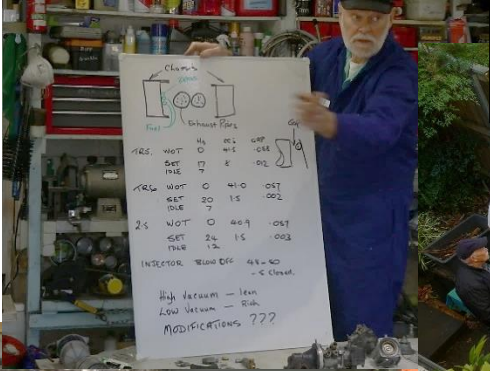 Chassis
Fuel
Exhaust Pipes
Hg psi GAP
TR5. WOT 0 41.5
SET 17 .012
IDLE 7
TR6 WOT 0 41.0 .057
SET 20 1.5 .002
IDLE 7
2.5 WOT 0 40.9 .057
SET 24 1.5 .003
IDLE 12
INJECTOR BLOW OFF 48-50
- 5 closed.
High Vacuum — lean
Low Vacuum — Rich
MODIFICATIONS ???